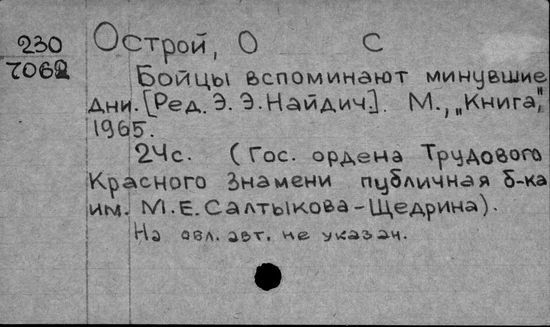 230 Острой, О С
7062 Бойцы вспоминают минувшие
дни. [Ред. Э. Э. Найдич]. М., „Книга",
1965.
24с. (Гос. ордена Трудового
Красного Знамени публичная б-ка
им. М.Е. Салтыкова-Щедрина).
На обл. авт. не указан.